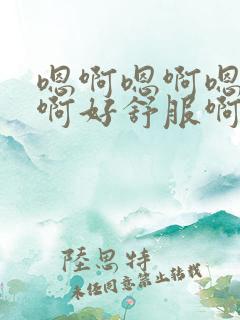 嗯啊嗯啊嗯
啊好舒服啊
陸思特
未经同意禁止转载